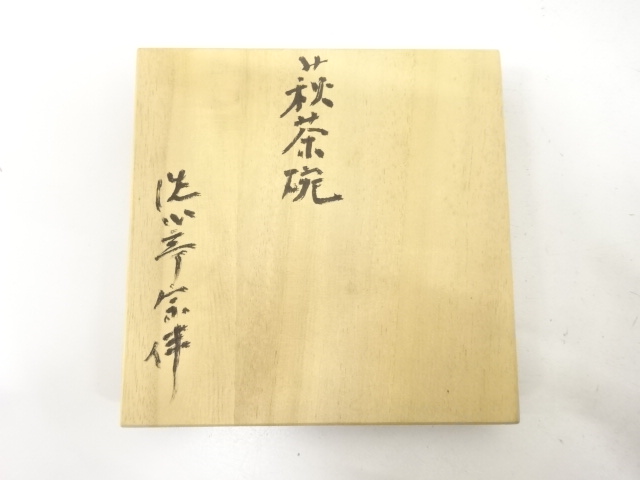 萩茶碗
洗心亭宗伴